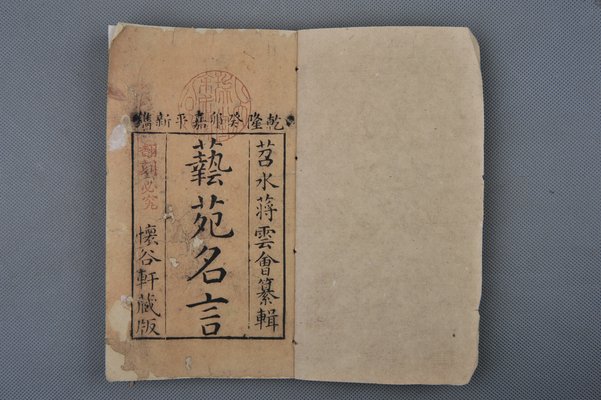 乾隆癸卯嘉平新鐫
苕水蔣雲會纂輯
藝苑名言
懷谷軒藏版
翻刻必究